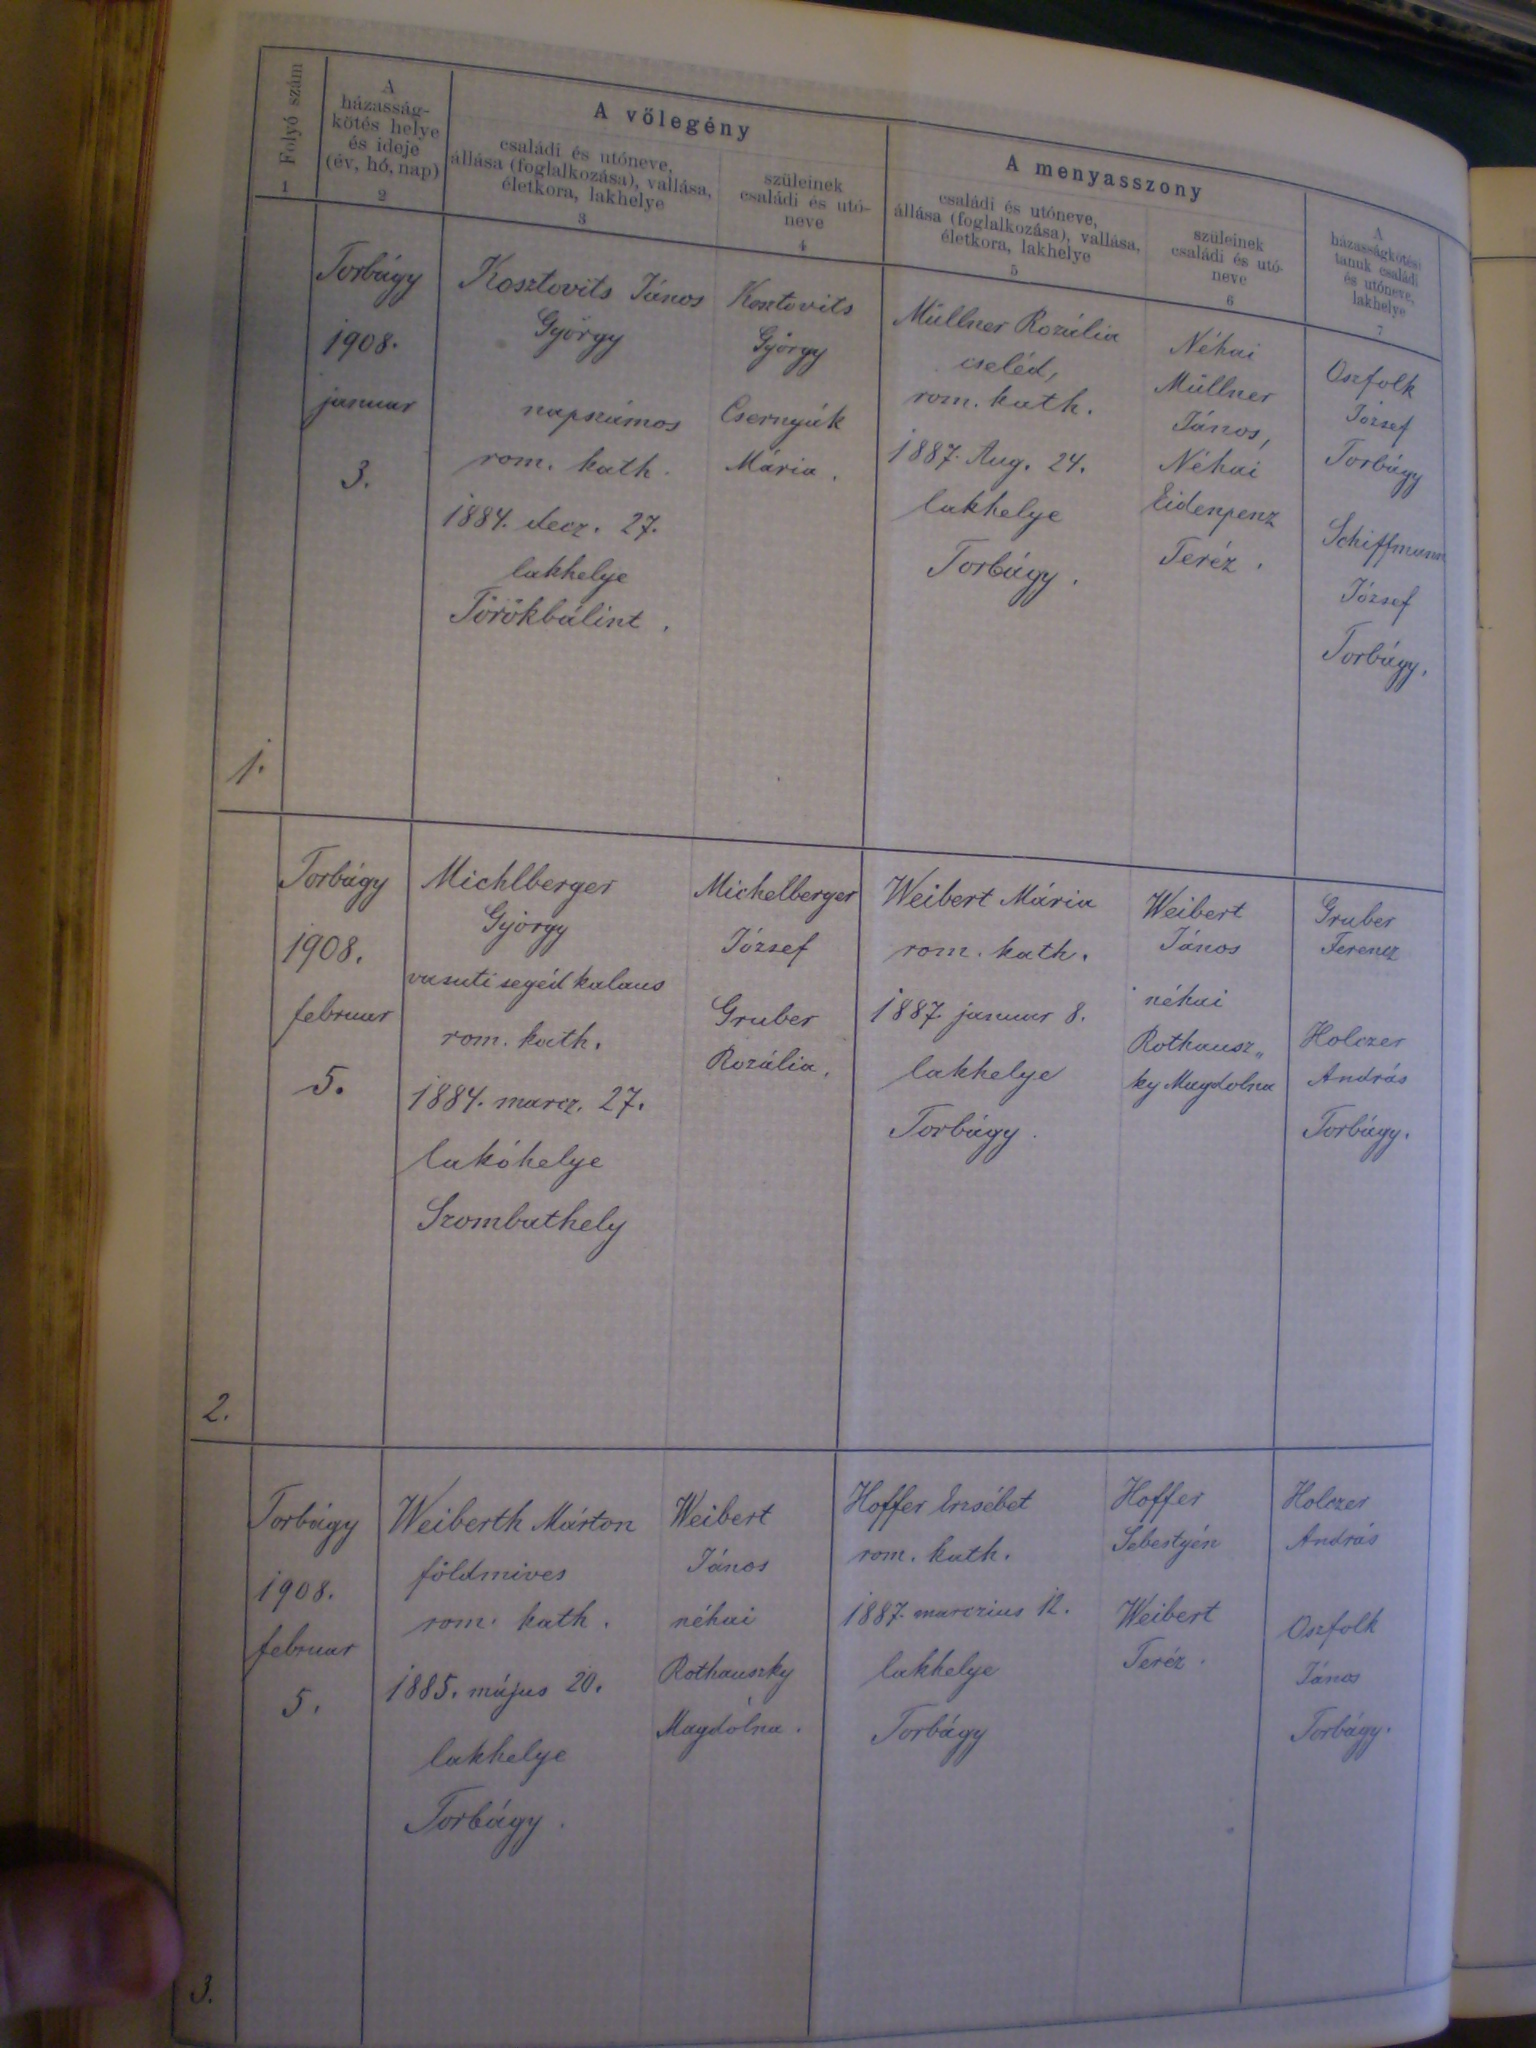 Folyó szám
1
A
házasság-
kötés helye
és ideje
(év, hó, nap)
2
A vőlegény
családi és utóneve,
állása (foglalkozása), vallása,
életkora, lakhelye
3
szüleinek
családi és utó-
neve
4
A menyasszony
családi és utóneve,
állása (foglalkozása), vallása,
életkora, lakhelye
5
szüleinek
családi és utó-
neve
6
A
házasságkötési
tanuk családi
és utóneve,
lakhelye
7
1.
Torbágy
1908.
januar
3.
Kosztovits János
György
napszámos
rom. kath.
1884. decz. 27.
lakhelye
Törökbálint.
Kosztovits
György
Csernyák
Mária.
Müllner Rozália
cseléd,
rom. kath.
1887. Aug. 24.
lakhelye
Torbágy.
Néhai
Müllner
János,
Néhai
Eidenpenz
Teréz.
Oszfolk
József
Torbágy
Schiffmann
József
Torbágy.
2.
Torbágy
1908.
februar
5.
Michlberger
György
vasuti segéd kalaus
rom. kath.
1884. marcz. 27.
lakóhelye
Szombathely
Michelberger
József
Gruber
Rozália.
Weibert Mária
rom. kath.
1887 januar 8.
lakhelye
Torbágy.
Weibert
János
néhai
Rothausz„
ky Magdolna
Gruber
Ferencz
Holczer
András
Torbágy.
3.
Torbágy
1908.
februar
5.
Weiberth Márton
földmives
rom. kath.
1885. május 20.
lakhelye
Torbágy.
Weibert
János
néhai
Rothauszky
Magdólna.
Hoffer Erzsébet
rom. kath.
1887. marczius 12.
lakhelye
Torbágy
Hoffer
Sebestyén
Weibert
Teréz.
Holczer
András
Oszfolk
János
Torbágy.